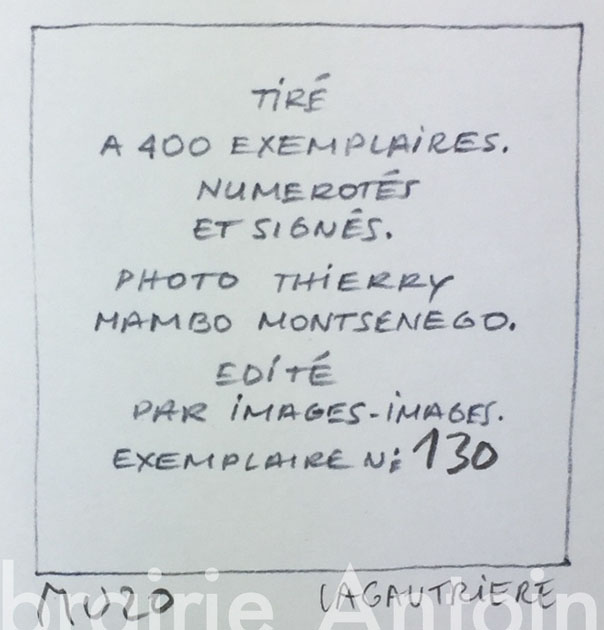 TIRÉ
A 400 EXEMPLAIRES.
NUMEROTÉS
ET SIGNÉS.
PHOTO THIERRY
MAMBO MONTSENEGO.
EDITÉ
PAR IMAGES-IMAGES.
EXEMPLAIRE N: 130
MUZO LAGAUTRIERE
brairie Antoin